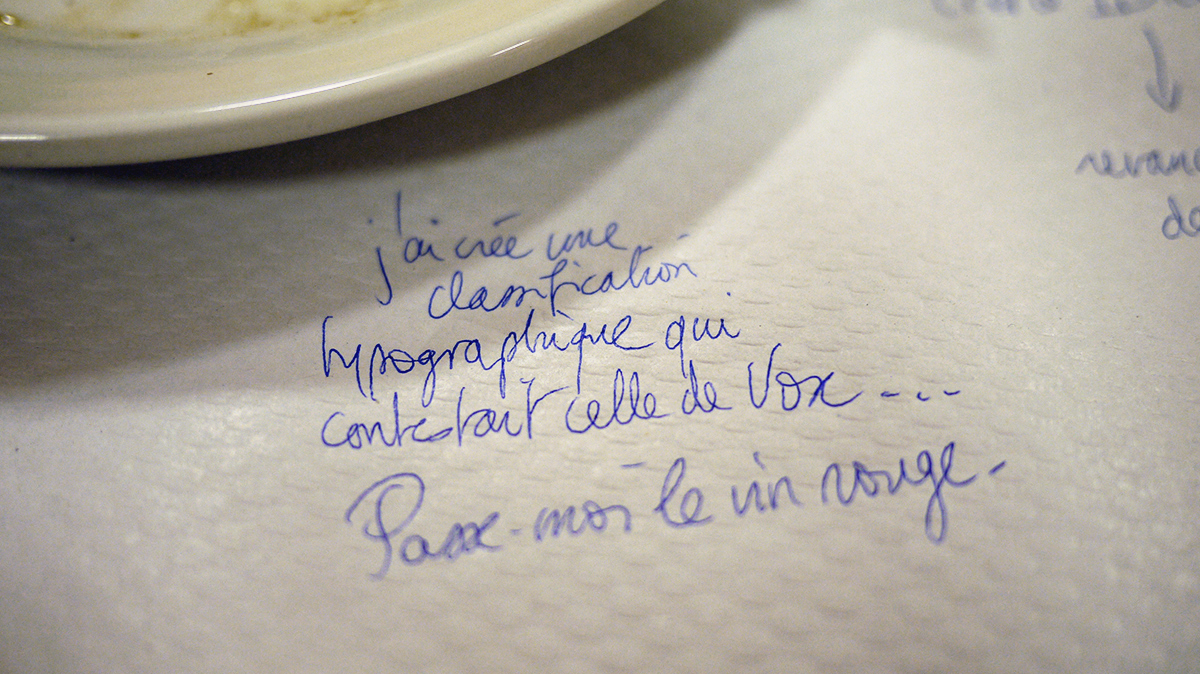 j'ai créé une
classification
typographique qui
contestait celle de Vox ...
Passe-moi le vin rouge.